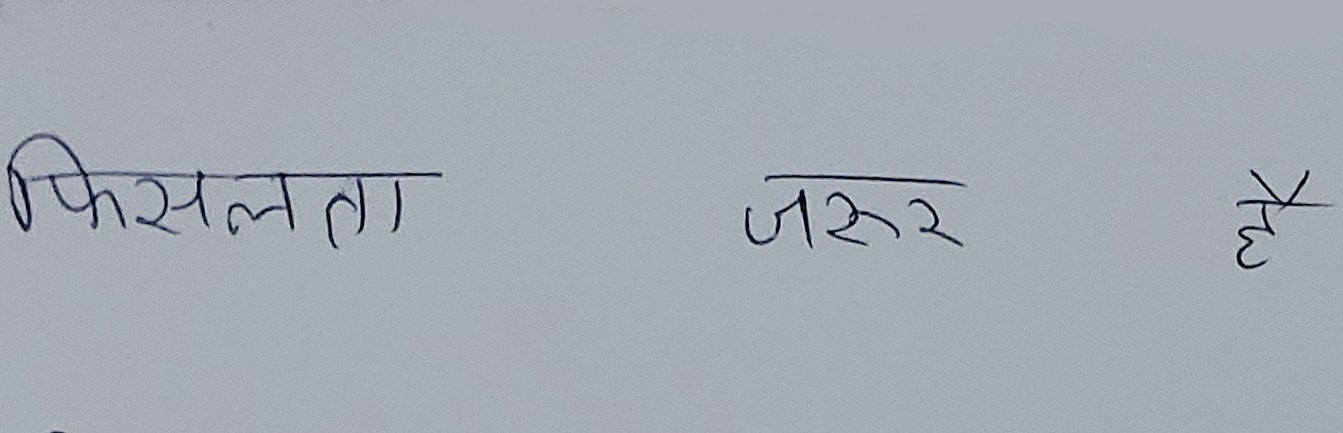 फिसलता जरुर है